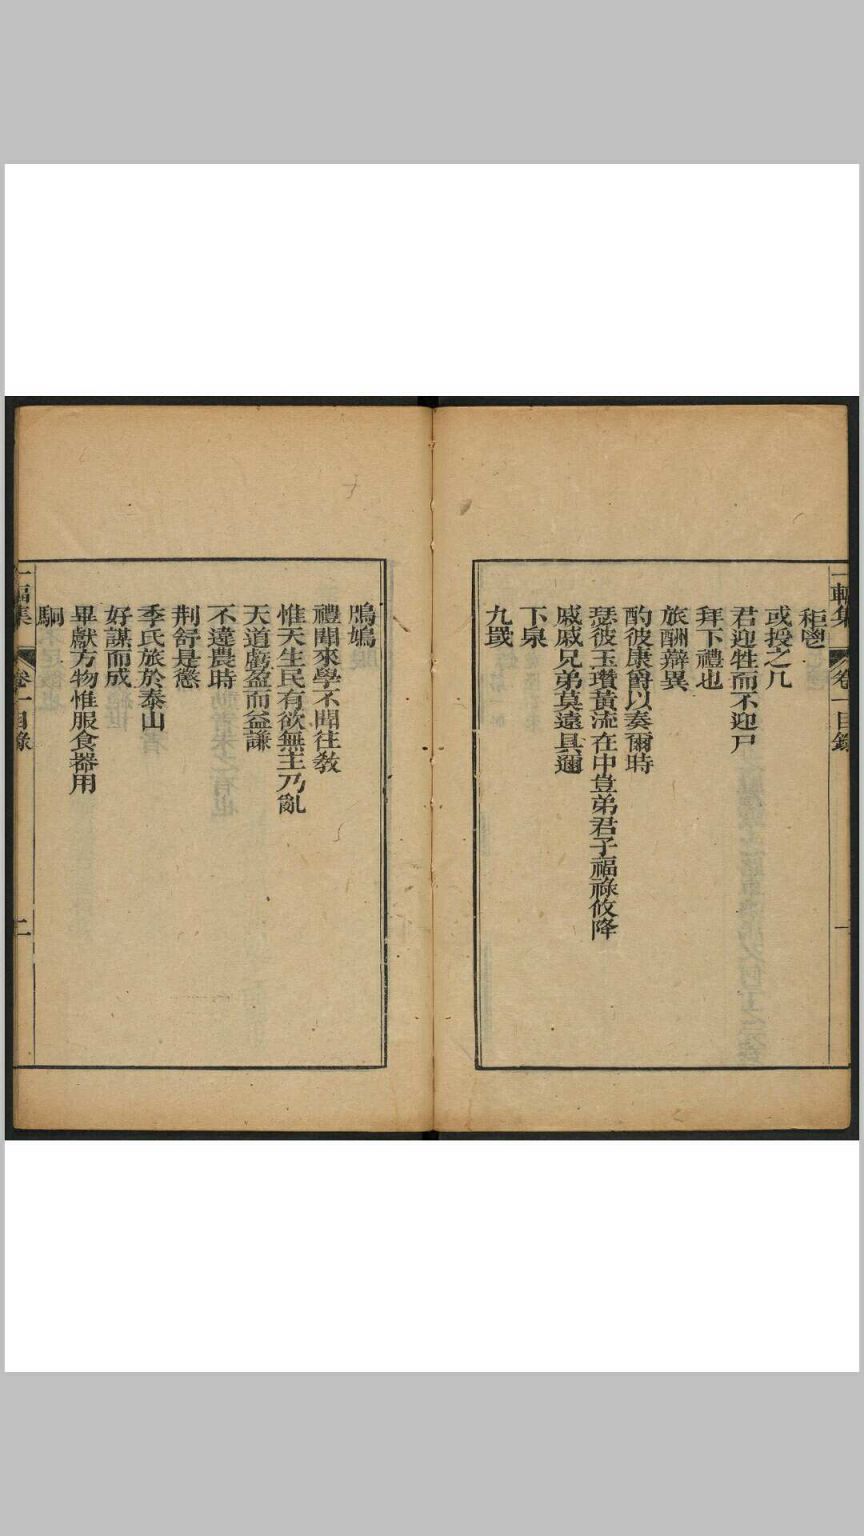 秬鬯
或授之几
君迎牲而不迎尸
拜下禮也
旅酬辯異
酌彼康爵以奏爾時
瑟彼玉瓚黃流在中豈弟君子福祿攸降
戚戚兄弟莫遠具邇
下泉
九罭
卷一目錄
一
鴟鴞
禮聞來學不聞往敎
惟天生民有欲無主乃亂
天道虧盈而益謙
不違農時
荆舒是懲
季氏旅於泰山
好謀而成
畢獻方物惟服食器用
駉
卷一目錄
二